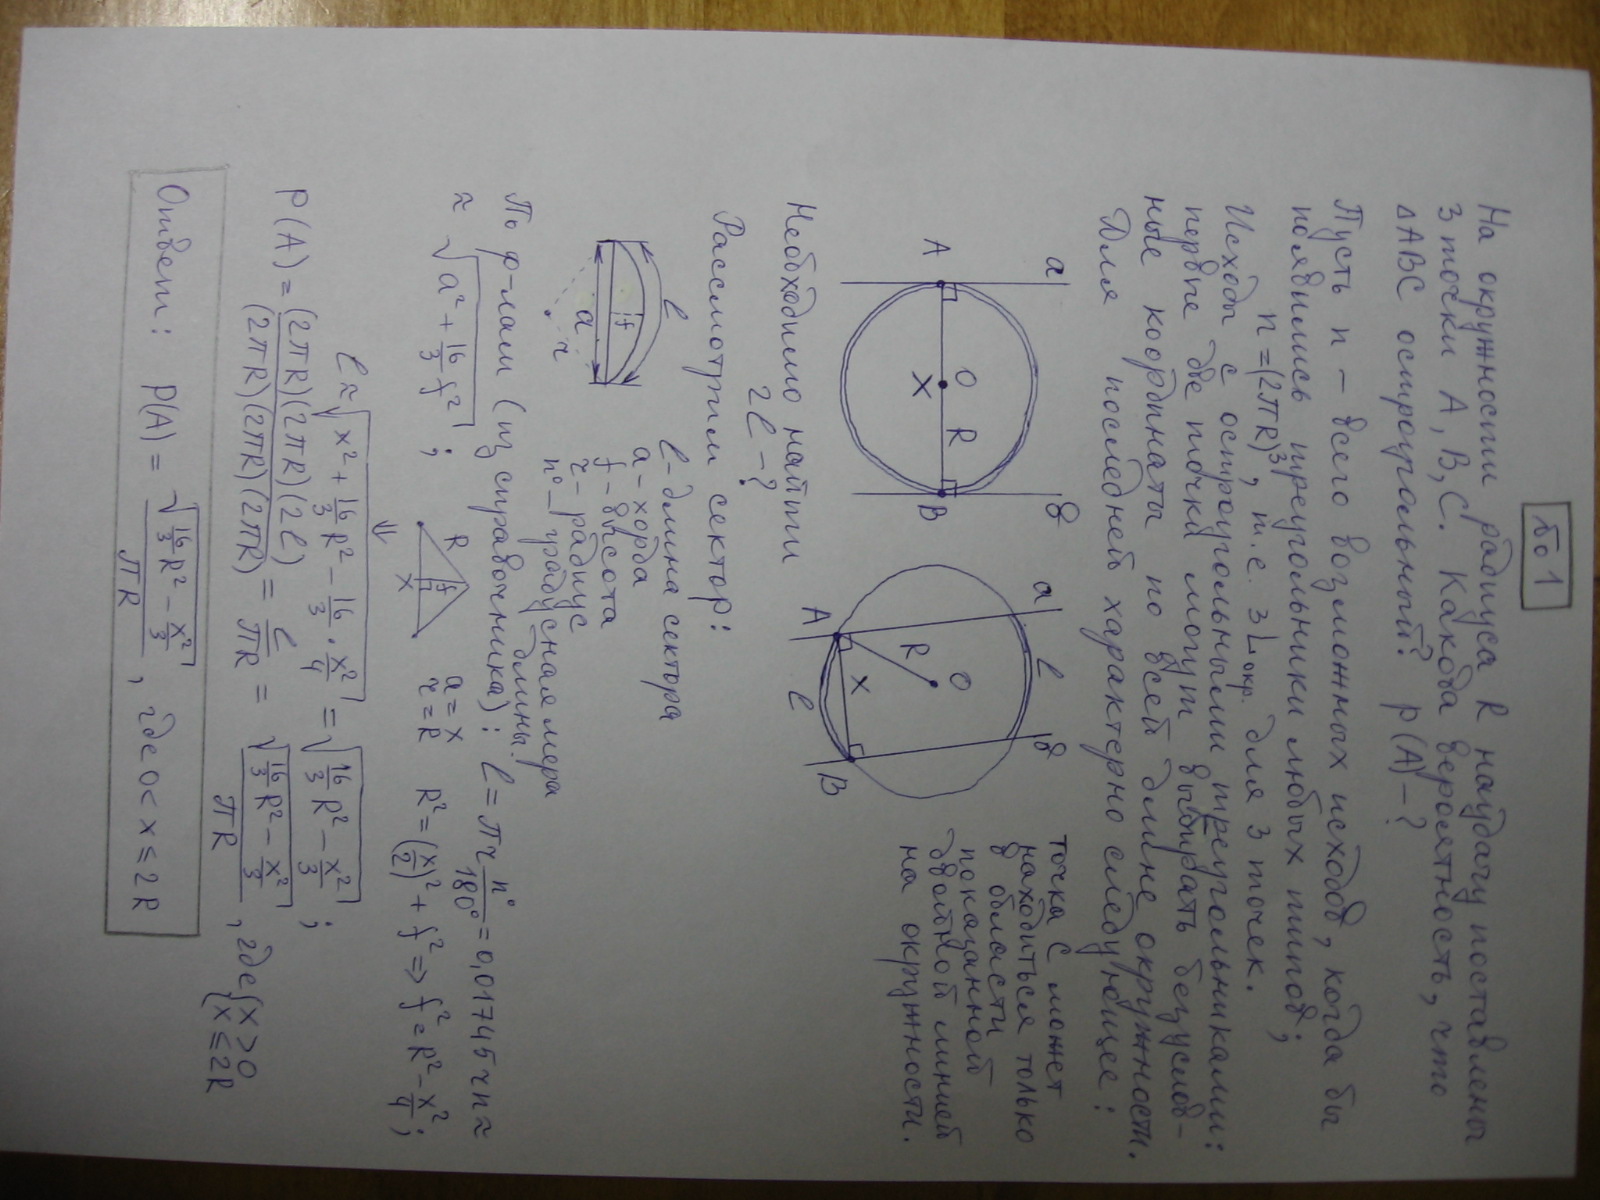 № 1
На окружности радиуса R наудачу поставлены
3 точки A, B, C. Какова вероятность, что
ΔABC остроугольный? P(A) - ?
Пусть n – всего возможных исходов, когда бы
появились треугольники любых типов;
n = (2πR)³, т.е. 3 Lокр. для 3 точек.
Исходы с остроугольными треугольниками:
первые две точки могут выбирать безуслов-
ные координаты по всей длине окружности.
Для последней характерно следующее:
a
b
A
O
R
B
X
a
b
l
O
R
A
X
B
l
точка C может
находиться только
в области
показанной
двойной линией
на окружности.
Необходимо найти
2l - ?
Рассмотрим сектор:
l
f
a
r
l – длина сектора
a – хорда
f – высота
r – радиус
n° – градусная мера
длины.
По ф-лам (из справочника): l = πr n°/180° = 0,01745 r n ≈
≈ √(a² + 16/3 f²);
R
f
X
a = x
r = R
R² = (x/2)² + f² ⇒ f² = R² − x²/4;
⇓
l ≈ √(x² + 16/3 R² − 16/3 · x²/4) = √(16/3 R² − x²/3);
P(A) = (2πR)(2πR)(2l) / (2πR)(2πR)(2πR) = l/πR = √(16/3 R² − x²/3) / πR, где { x > 0
x ≤ 2R
Ответ: P(A) = √(16/3 R² − x²/3) / πR, где 0 < x ≤ 2R